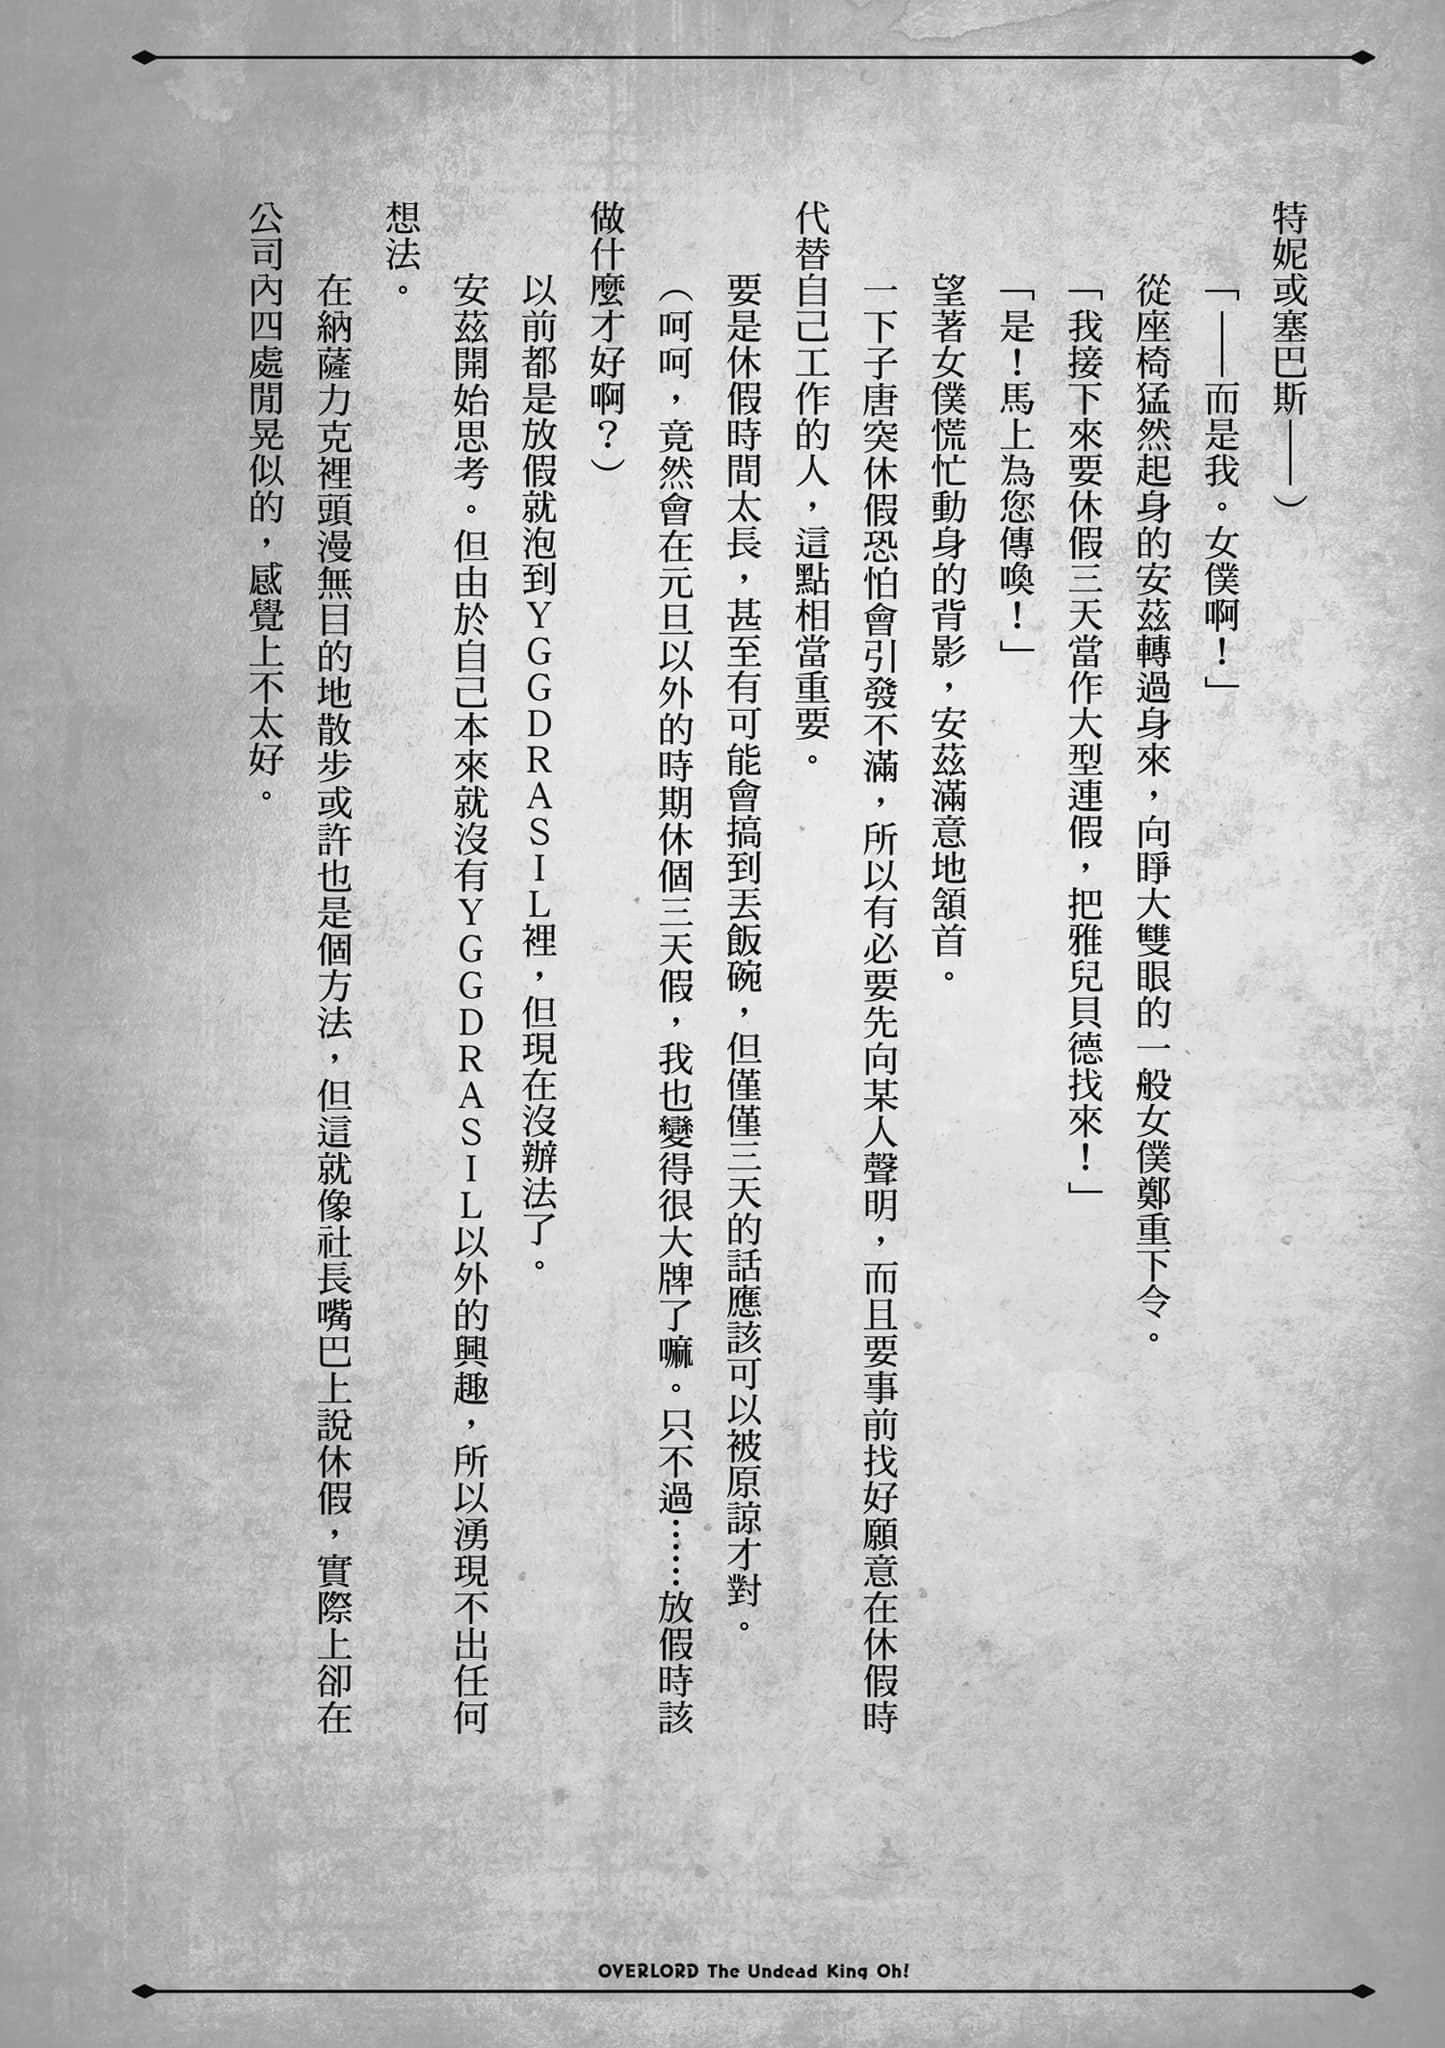 特妮或塞巴斯——）
「——而是我。女僕啊！」
從座椅猛然起身的安茲轉過身來，向睜大雙眼的一般女僕鄭重下令。
「我接下來要休假三天當作大型連假，把雅兒貝德找來！」
「是！馬上為您傳喚！」
望著女僕慌忙動身的背影，安茲滿意地頷首。
一下子唐突休假恐怕會引發不滿，所以有必要先向某人聲明，而且要事前找好願意在休假時
代替自己工作的人，這點相當重要。
要是休假時間太長，甚至有可能會搞到丟飯碗，但僅僅三天的話應該可以被原諒才對。
（呵呵，竟然會在元旦以外的時期休個三天假，我也變得很大牌了嘛。只不過……放假時該
做什麼才好啊？）
以前都是放假就泡到YGGDRASIL裡，但現在沒辦法了。
安茲開始思考。但由於自己本來就沒有YGGDRASIL以外的興趣，所以湧現不出任何
想法。
在納薩力克裡頭漫無目的地散步或許也是個方法，但這就像社長嘴巴上說休假，實際上卻在
公司內四處閒晃似的，感覺上不太好。
OVERLORD The Undead King Oh!